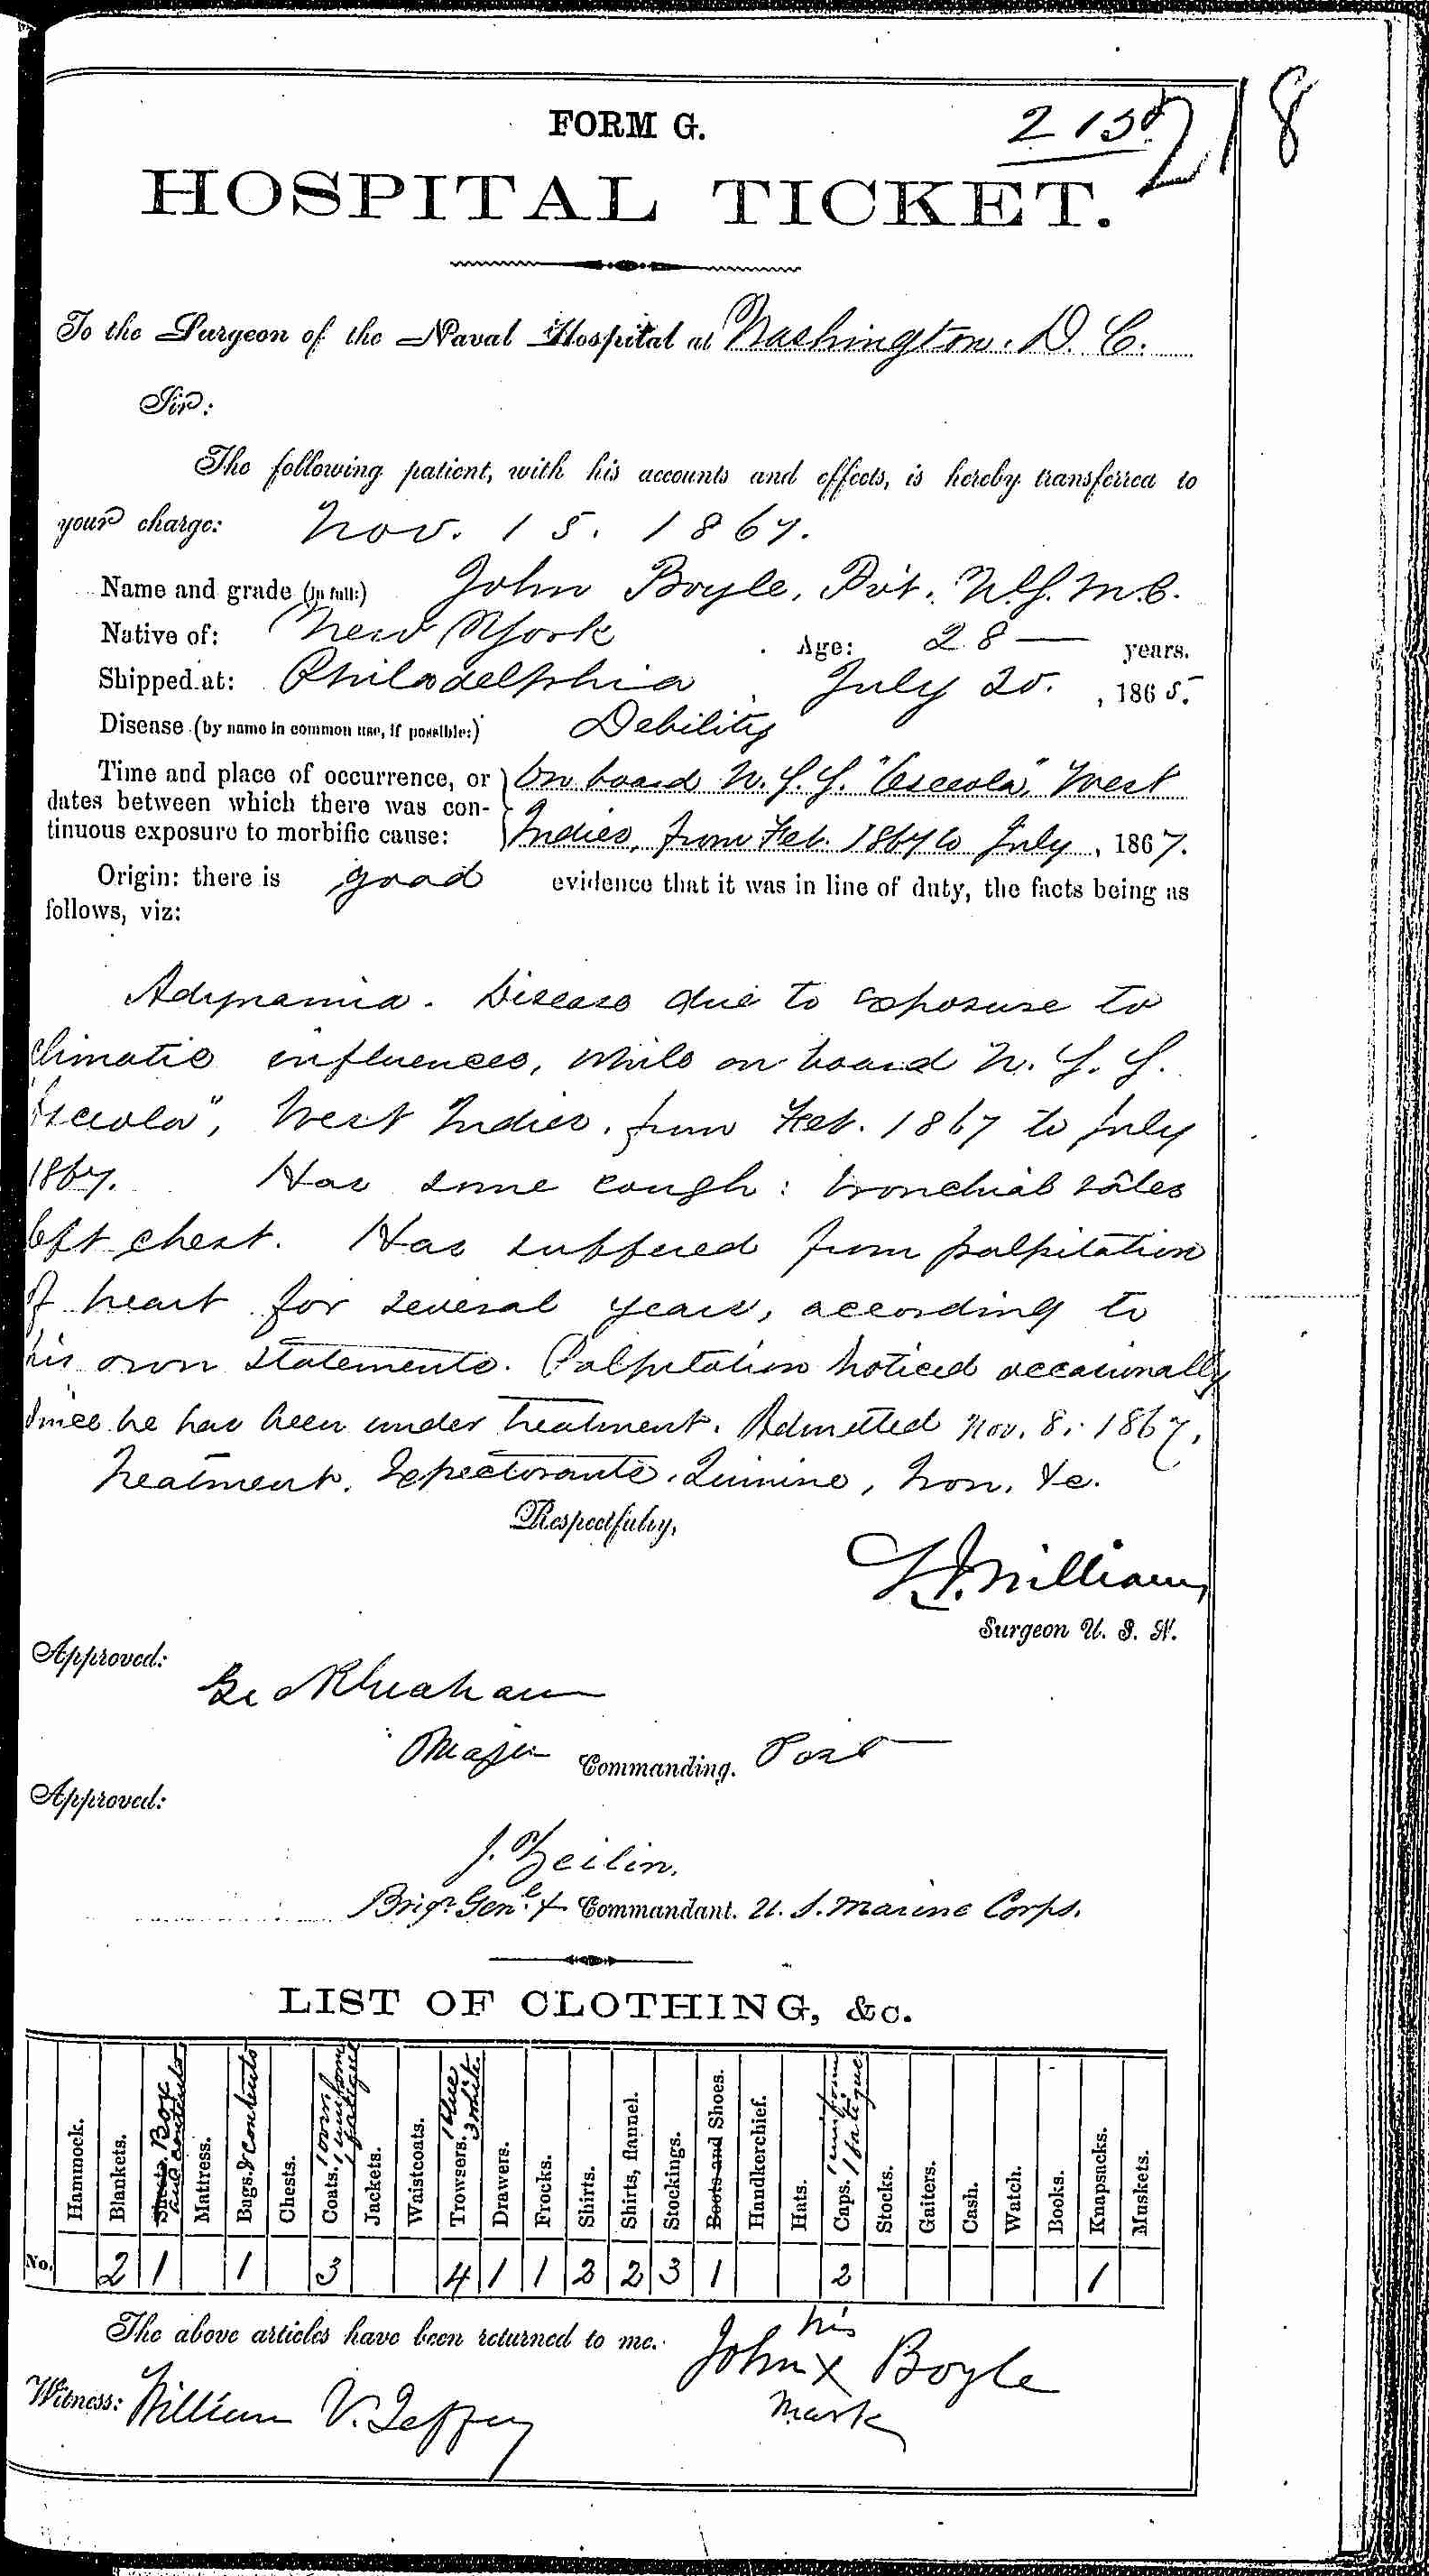 FORM G.
218
HOSPITAL TICKET.
To the Surgeon of the Naval Hospital at Washington. D. C.
Sir:
The following patient, with his accounts and effects, is hereby transferred to
your charge: Nov. 15. 1867.
Name and grade (in full:) John Boyle, Pvt. U.S.M.C.
Native of: New York Age: 28 — years.
Shipped at: Philadelphia, July 20. , 1865.
Disease (by name in common use, if possible:) Debility
Time and place of occurrence, or On board U.S.S. "Osceola", West
dates between which there was con-
tinuous exposure to morbific cause: Indies, from Feb. 1867 to July , 1867.
Origin: there is good evidence that it was in line of duty, the facts being as
follows, viz:
Adynamia. Disease due to exposure to
climatic influences, while on board U. S. S.
"Osceola", West Indies. from Feb. 1867 to July
1867. Has some cough: bronchial râles
left chest. Has suffered from palpitation
of heart for several years, according to
his own statements. Palpitation noticed occasionally
since he has been under treatment. Admitted Nov. 8. 1867.
Treatment. Expectorants. Quinine, Iron, &c.
Respectfully,
Williams
Surgeon U. S. N.
Approved:
Geo R Graham
Major Commanding. Post
Approved:
J. Zeilin.
Brigr Genl. & Commandant. U. S. Marine Corps.
LIST OF CLOTHING, &c.
Hammock.
Blankets.
Box and contents
Mattress.
Bags. & Contents
Chests.
Coats. 1 uniform 1 fatigue
Jackets.
Waistcoats.
Trowsers. 1 blue 3 white
Drawers.
Frocks.
Shirts.
Shirts, flannel.
Stockings.
Boots and Shoes.
Handkerchief.
Hats.
Caps. 1 uniform 1 fatigue
Stocks.
Gaiters.
Cash.
Watch.
Books.
Knapsacks.
Muskets.
No. 2 1 1 3 4 1 1 2 2 3 1 2 1
The above articles have been returned to me.
his
John X Boyle
mark
Witness: William V. Jeffrey